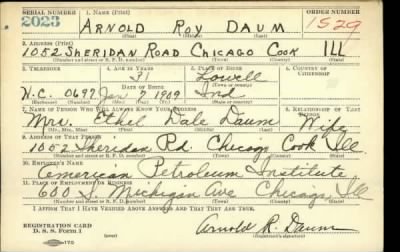 SERIAL NUMBER 1. NAME (Print) ORDER NUMBER
2023 ARNOLD ROY DAUM 1529
(First) (Middle) (Last)
2. ADDRESS (Print)
1052 SHERIDAN ROAD CHICAGO COOK ILL
(Number and street or R. F. D. number) (Town) (County) (State)
3. TELEPHONE 4. AGE IN YEARS 5. PLACE OF BIRTH 6. COUNTRY OF CITIZENSHIP
31 Lowell
DATE OF BIRTH (Town or county)
H.C. 0697 Jan 7 1909 Ind
(Exchange) (Number) (Mo.) (Day) (Yr.) (State or country)
7. NAME OF PERSON WHO WILL ALWAYS KNOW YOUR ADDRESS 8. RELATIONSHIP OF THAT PERSON
Mrs. Ethel Dale Daum Wife
(Mr., Mrs., Miss) (First) (Middle) (Last)
9. ADDRESS OF THAT PERSON
1052 Sheridan Rd Chicago Cook Ill
(Number and street or R. F. D. number) (Town) (County) (State)
10. EMPLOYER'S NAME
American Petroleum Institute
11. PLACE OF EMPLOYMENT OR BUSINESS
600 S. Michigan Ave Chicago, Ill
(Number and street or R. F. D. number) (Town) (County) (State)
I AFFIRM THAT I HAVE VERIFIED ABOVE ANSWERS AND THAT THEY ARE TRUE.
REGISTRATION CARD
D. S. S. Form 1 Arnold R. Daum
(Registrant's signature)